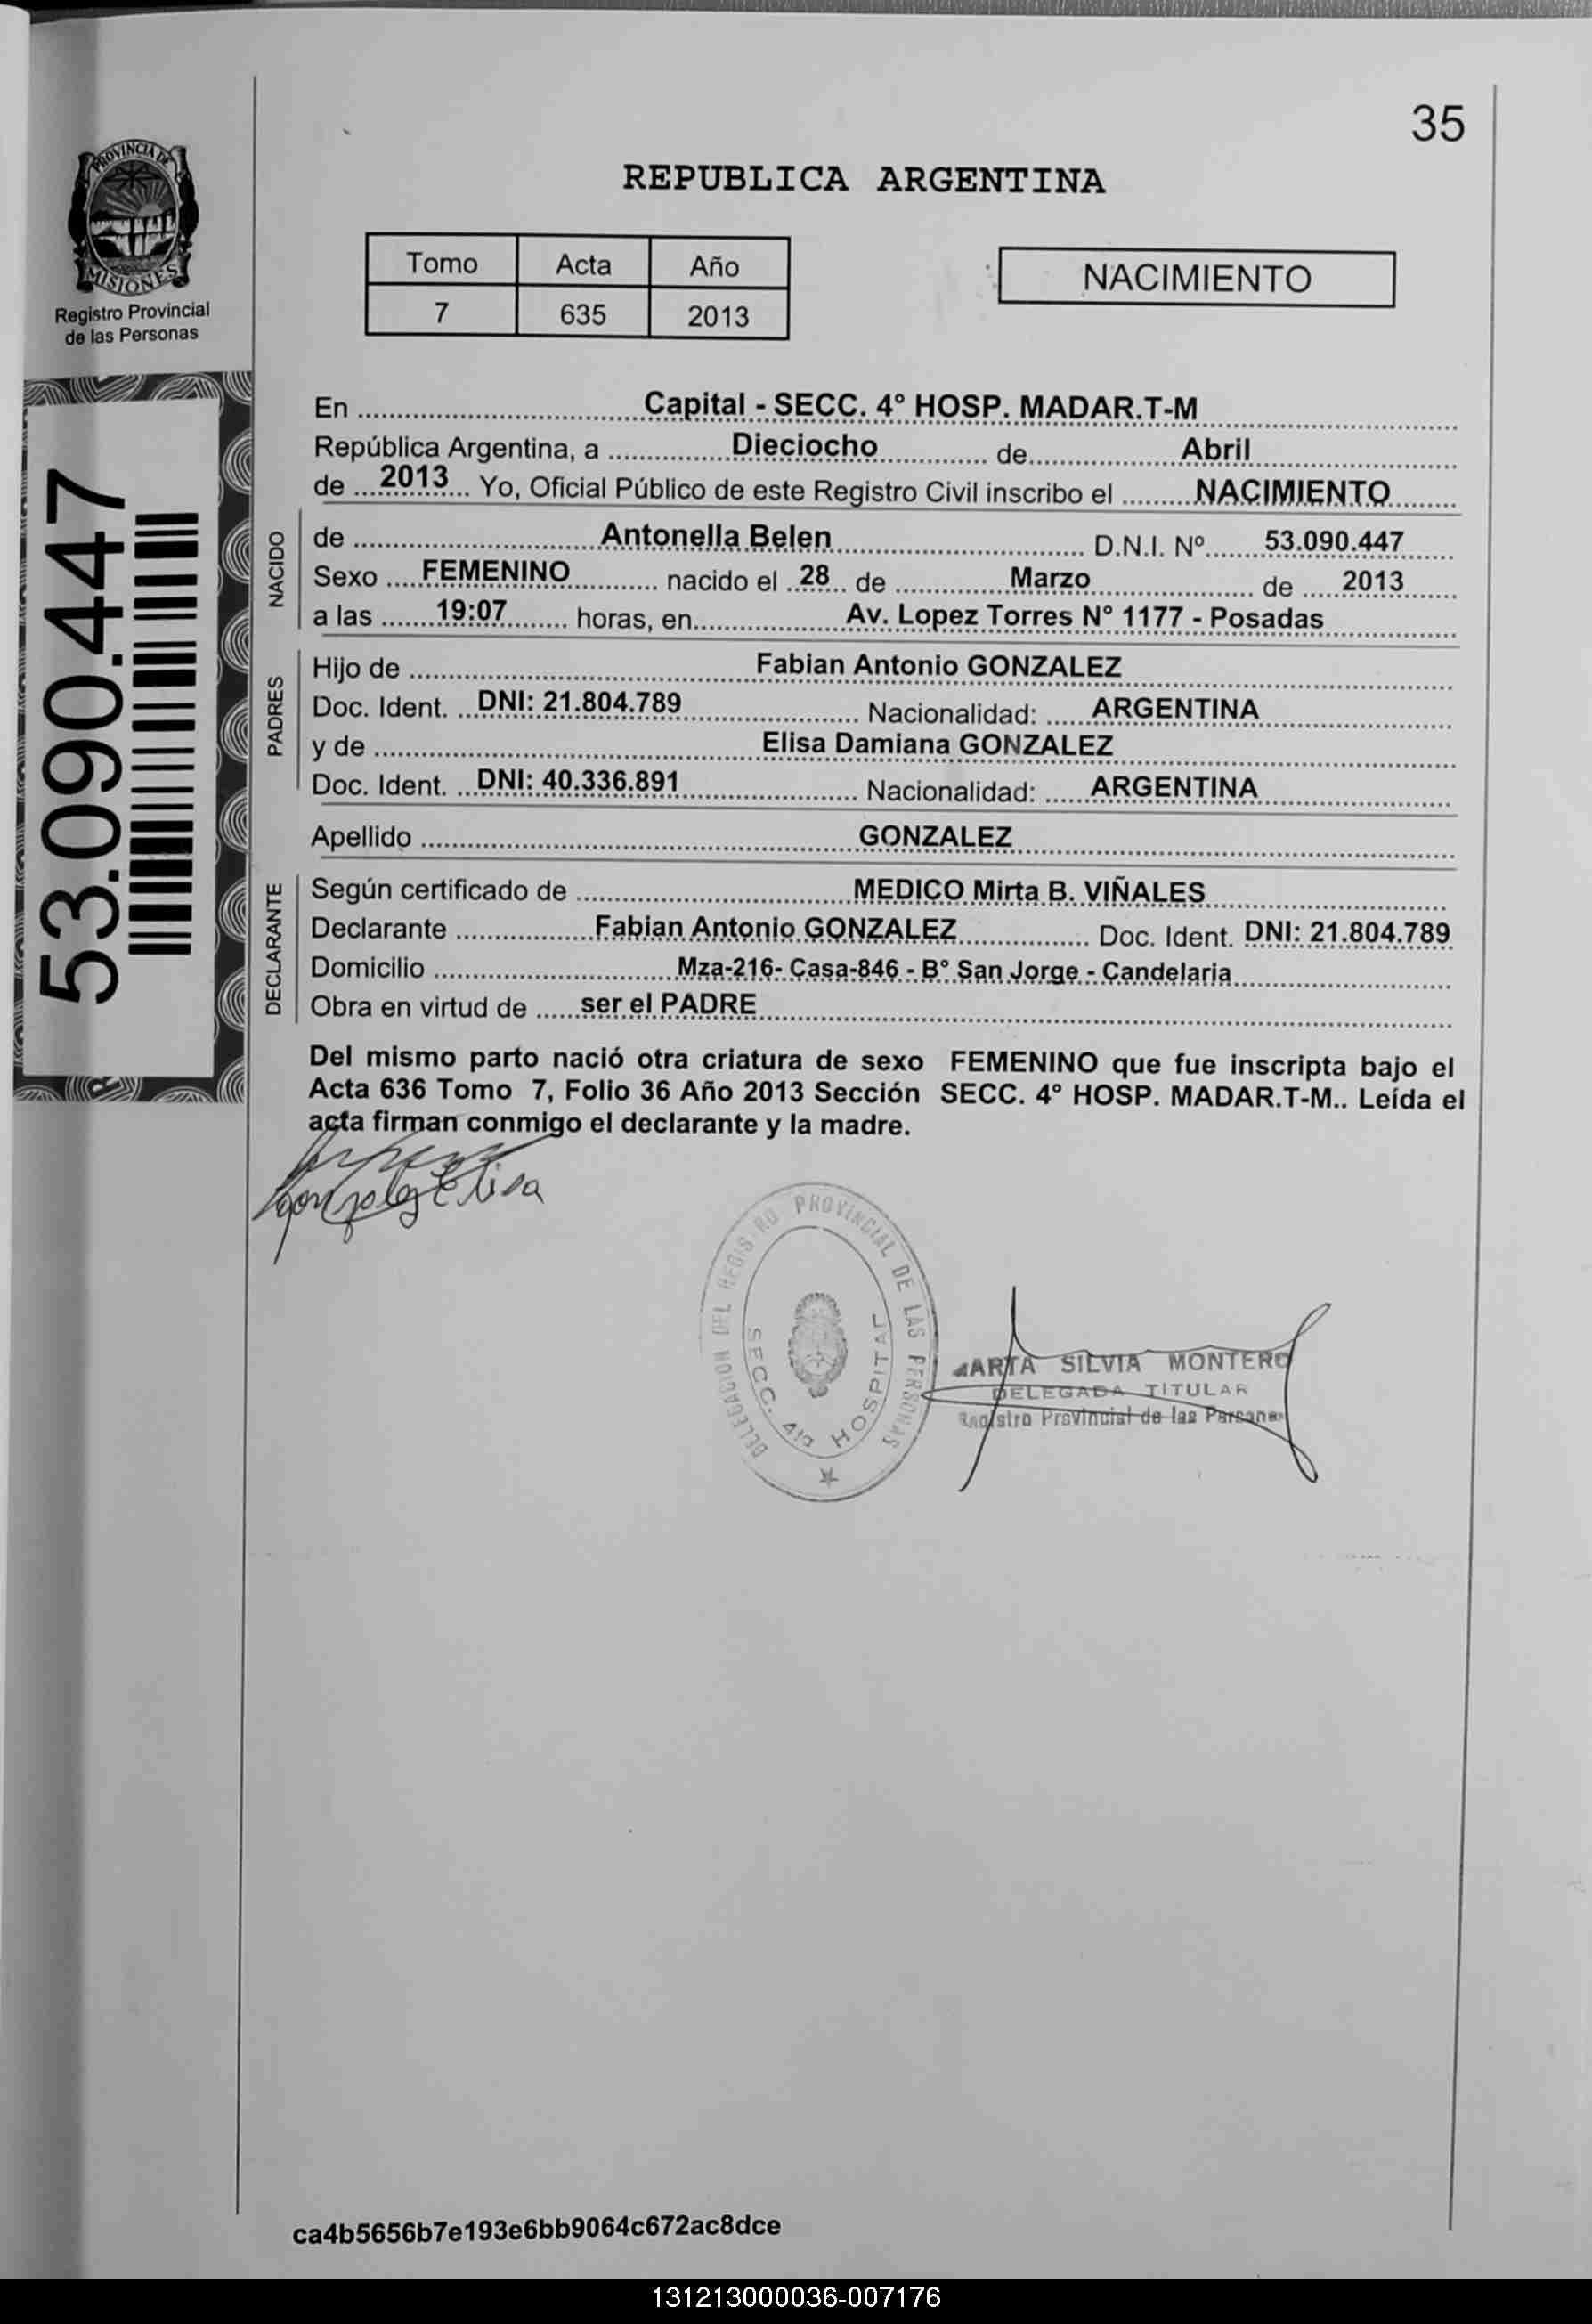 35
PROVINCIA DE
MISIONES
Registro Provincial
de las Personas
53.090.447
REPUBLICA ARGENTINA
Tomo Acta Año
7 635 2013
NACIMIENTO
En Capital - SECC. 4° HOSP. MADAR.T-M
República Argentina, a Dieciocho de Abril
de 2013 Yo, Oficial Público de este Registro Civil inscribo el NACIMIENTO
NACIDO
de Antonella Belen D.N.I. Nº 53.090.447
Sexo FEMENINO nacido el 28 de Marzo de 2013
a las 19:07 horas, en Av. Lopez Torres N° 1177 - Posadas
PADRES
Hijo de Fabian Antonio GONZALEZ
Doc. Ident. DNI: 21.804.789 Nacionalidad: ARGENTINA
y de Elisa Damiana GONZALEZ
Doc. Ident. DNI: 40.336.891 Nacionalidad: ARGENTINA
Apellido GONZALEZ
DECLARANTE
Según certificado de MEDICO Mirta B. VIÑALES
Declarante Fabian Antonio GONZALEZ Doc. Ident. DNI: 21.804.789
Domicilio Mza-216- Casa-846 - B° San Jorge - Candelaria
Obra en virtud de ser el PADRE
Del mismo parto nació otra criatura de sexo FEMENINO que fue inscripta bajo el
Acta 636 Tomo 7, Folio 36 Año 2013 Sección SECC. 4° HOSP. MADAR.T-M.. Leída el
acta firman conmigo el declarante y la madre.
Gonzalez Elisa
DELEGACION DEL REGISTRO PROVINCIAL DE LAS PERSONAS
SECC. 4ta HOSPITAL
MARTA SILVIA MONTERO
DELEGADA TITULAR
Registro Provincial de las Personas
ca4b5656b7e193e6bb9064c672ac8dce
131213000036-007176